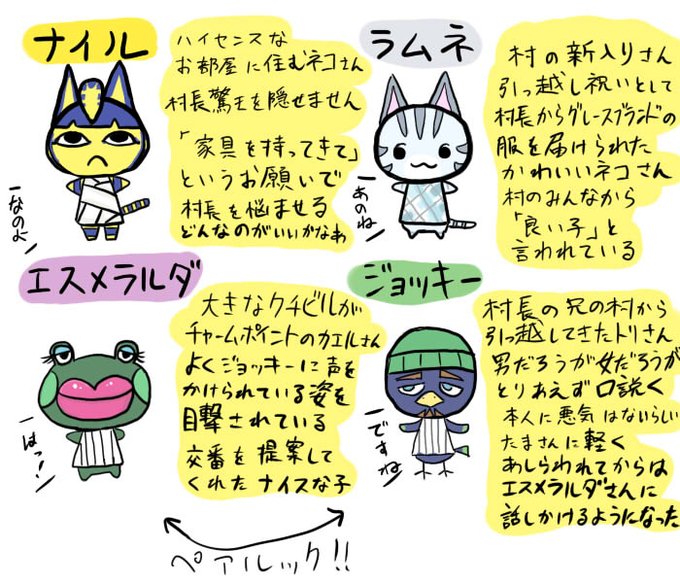 ナイル
ハイセンスな
お部屋に住むネコさん
村長驚きを隠せません
「家具を持ってきて」
というお願いで
村長を悩ませる
どんなのがいいかなぁ
なのよ
ラムネ
村の新入りさん
引っ越し祝いとして
村長からグレースブランドの
服を届けられた
かわいいネコさん
村のみんなから
「良い子」と
言われている
あのね
エスメラルダ
大きなクチビルが
チャームポイントのカエルさん
よくジョッキーに声を
かけられている姿を
目撃されている
交番を提案して
くれたナイスな子
はっ!
ジョッキー
村長の兄の村から
引っ越してきたトリさん
男だろうが女だろうが
とりあえず口説く
本人に悪気はないらしい
たまさんに軽く
あしらわれてからは
エスメラルダさんに
話しかけるようになった
ですね
ペアルック!!